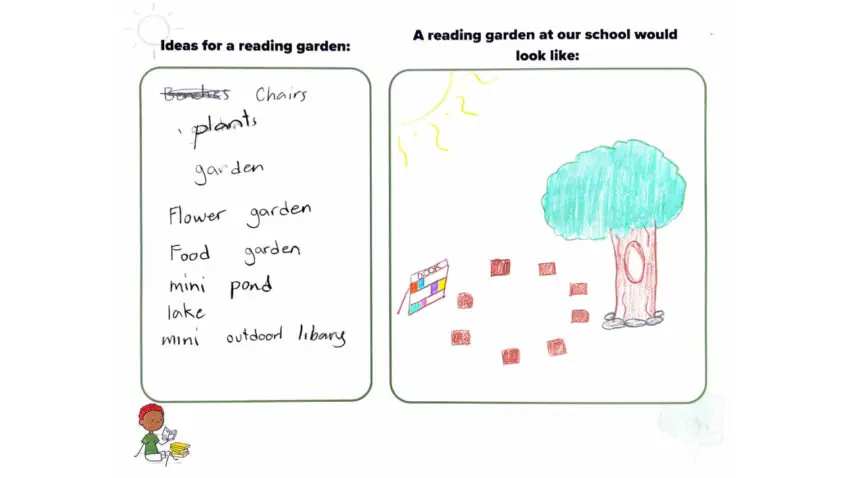 Ideas for a reading garden:
Benches Chairs
plants
garden
Flower garden
Food garden
mini pond
lake
mini outdoorl libary
A reading garden at our school would
look like:
BOOKS